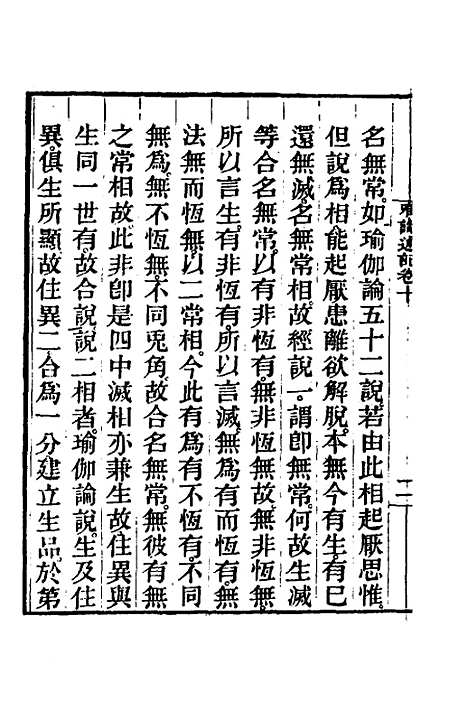 名無常。如瑜伽論五十二說。若由此相起厭思惟。
但說爲相。能起厭患離欲解脫。本無今有生。有已
還無滅。名無常相。故經說一。謂即無常。何故生滅
等合名無常。以有非恆有。無非恆無故。無非恆無。
所以言生。有非恆有。所以言滅。無爲有而恆有。無
法無而恆無。以二常相。今此有爲有不恆有。不同
無爲。無不恆無。不同兎角。故合名無常。無彼有無
之常相故。此非卽是四中滅相。亦兼生故。住異與
生同一世有。故合說。說二相者。瑜伽論說。生及住
異。俱生所顯故。住異二合爲一分。建立生品。於第
卷十